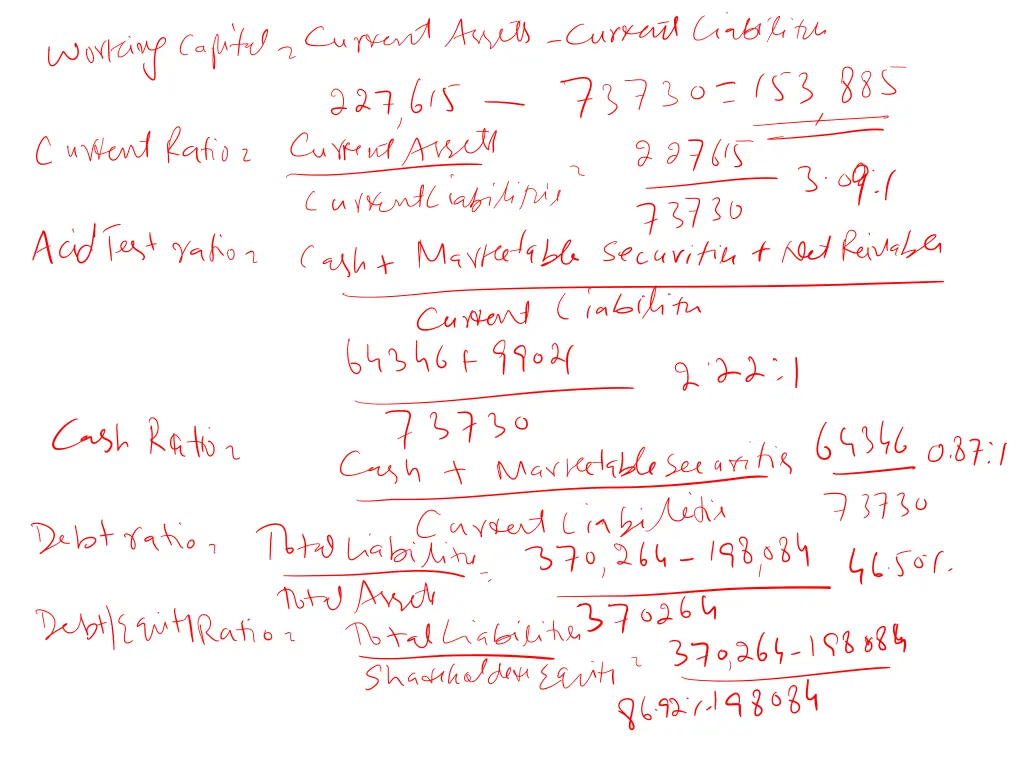 Working Capital = Current Assets - Current Liabilities
227,615 - 73730 = 153 885
Current Ratio = Current Assets / Current Liabilities = 227615 / 73730 3.09:1
Acid Test ratio = Cash + Marketable Securities + Net Reivables
Current Liabilities
64346 + 99021
73730
2.22:1
Cash Ratio = Cash + Marketable Securities
Current Liabilities
64346
73730
0.87:1
Debt ratio = Total Liabilities / Total Assets = 370,264 - 198,084 / 370264 46.50%
Debt/Equity Ratio = Total Liabilities / Shareholders Equity = 370,264 - 198084 / 198084
86.92%